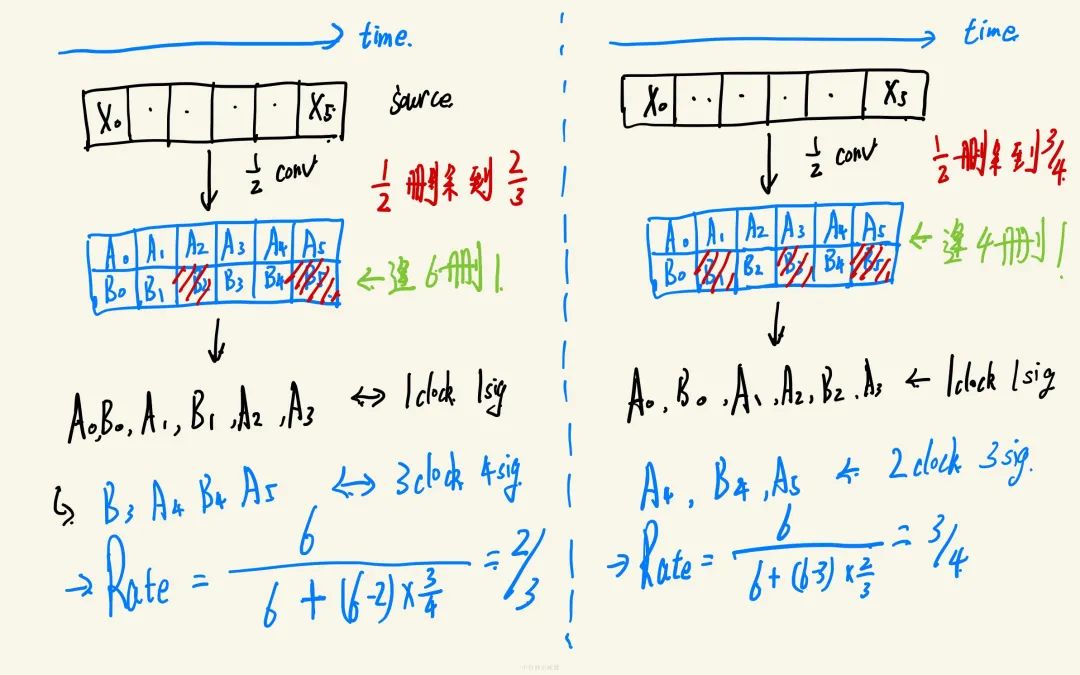 time.
X₀ · · · · X₅
source
½ conv
½ 删余到 ⅔
A₀ A₁ A₂ A₃ A₄ A₅
B₀ B₁ B₂ B₃ B₄ B₅
← 逢6删1
A₀,B₀,A₁,B₁,A₂,A₃ ↔ 1clock 1sig
↳ B₃ A₄ B₄ A₅ ↔ 3clock 4sig
→ Rate = 6 / (6 + (6-2) × ¾) = 2/3
time
X₀ ·· · · · X₅
½ conv
½ 删余到 3/4
A₀ A₁ A₂ A₃ A₄ A₅
B₀ B₁ B₂ B₃ B₄ B₅
← 逢4删1
A₀, B₀, A₁, A₂, B₂, A₃ ← 1clock 1sig
A₄, B₄, A₅ ← 2clock 3sig.
→ Rate = 6 / (6 + (6-3) × ⅔) = 3/4